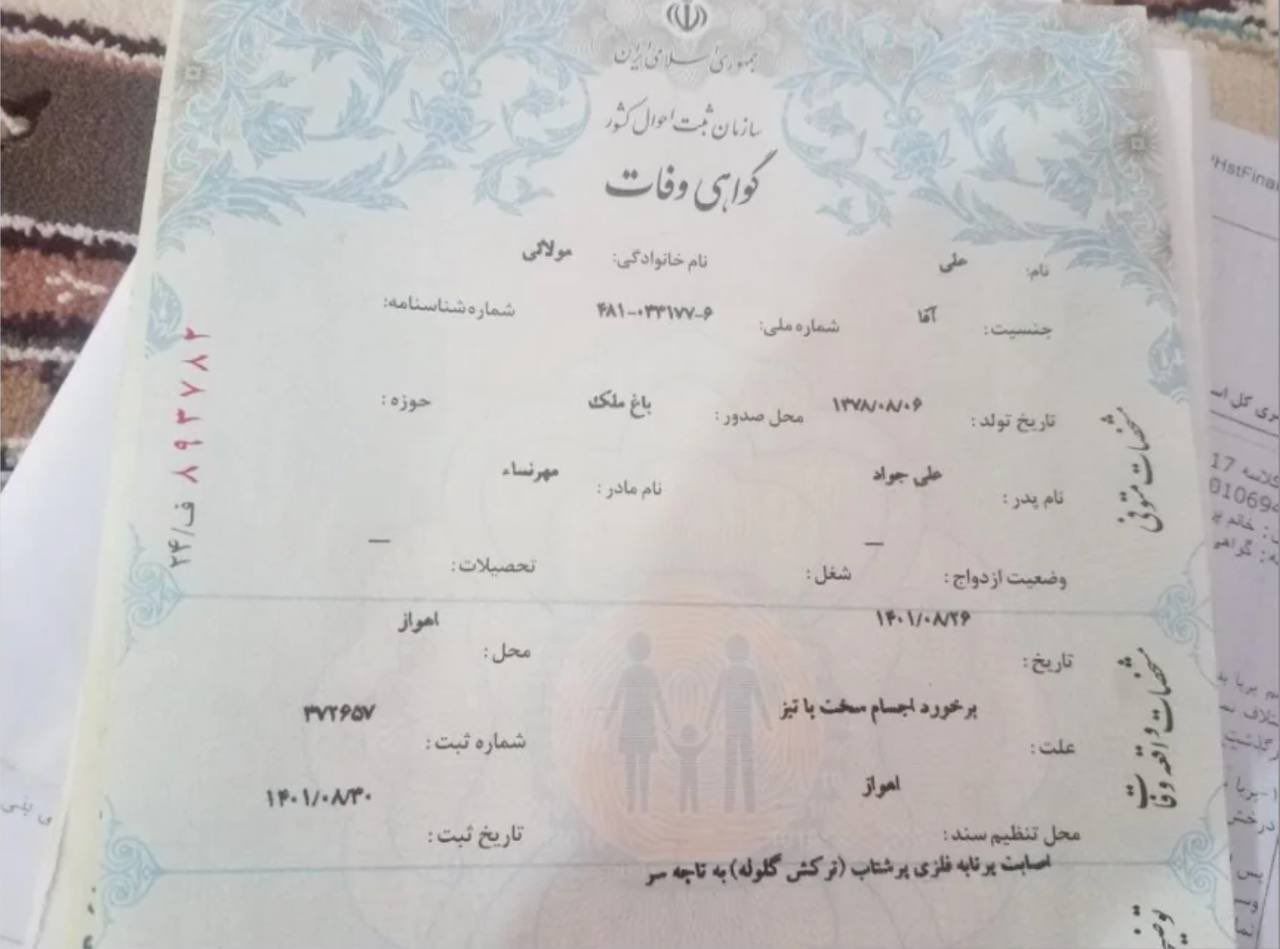 جمهوری اسلامی ایران
سازمان ثبت احوال کشور
گواهی وفات
نام: علی نام خانوادگی: مولائی
جنسیت: آقا شماره ملی: ۴۸۱-۰۳۳۱۷۷-۶ شماره شناسنامه:
تاریخ تولد: ۱۳۷۸/۰۸/۰۶ محل صدور: باغ ملک حوزه:
نام پدر: علی جواد نام مادر: مهرنساء
وضعیت ازدواج: — شغل: تحصیلات: —
مشخصات متوفی
تاریخ: ۱۴۰۱/۰۸/۲۶ محل: اهواز
علت: برخورد اجسام سخت یا تیز شماره ثبت: ۳۷۲۶۵۷
محل تنظیم سند: اهواز تاریخ ثبت: ۱۴۰۱/۰۸/۳۰
مشخصات واقعه وفات
اصابت پرتابه فلزی پرشتاب (ترکش گلوله) به تاجه سر
ف/۲۴ ۸۹۳۷۸۲
HstFina
17 کلاسه
01069
خانم